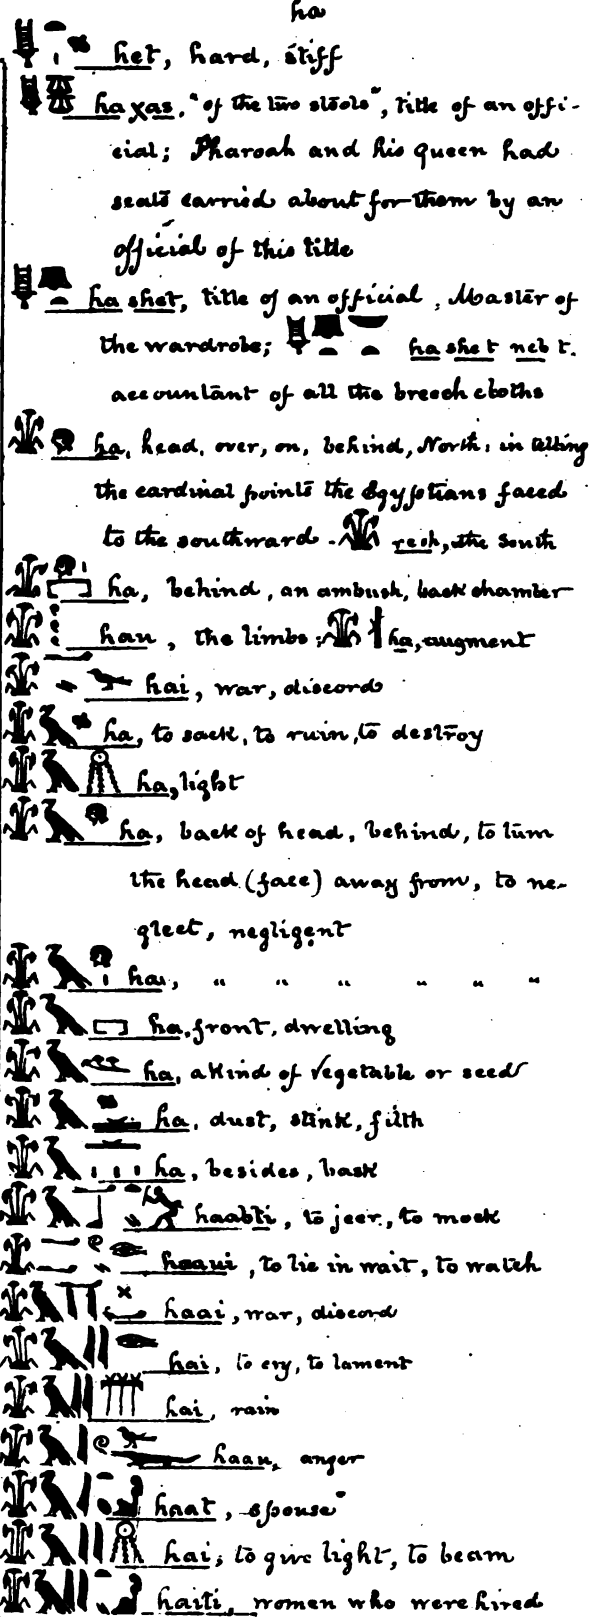 ha
het, hard, stiff
haχas, "of the two stools", title of an offi-
cial; Pharoah and his queen had
seats carried about for them by an
official of this title
ha shet, title of an official, Master of
the wardrobe; ha she t neb t.
accountant of all the breech cloths
ha, head, over, on, behind, North; in telling
the cardinal points the Egyptians faced
to the southward. resh, the South
ha, behind, an ambush, back chamber
hau, the limbs; ha, augment
hai, war, discord
ha, to sack, to ruin, to destroy
ha, light
ha, back of head, behind, to turn
the head (face) away from, to ne-
glect, negligent
ha, " " " " " "
ha, front, dwelling
ha, a kind of vegetable or seed
ha, dust, stink, filth
ha, besides, bask
haabti, to jeer, to mock
haaui, to lie in wait, to watch
haai, war, discord
hai, to cry, to lament
hai, rain
haau, anger
haat, spouse
hai; to give light, to beam
haiti, women who were hired